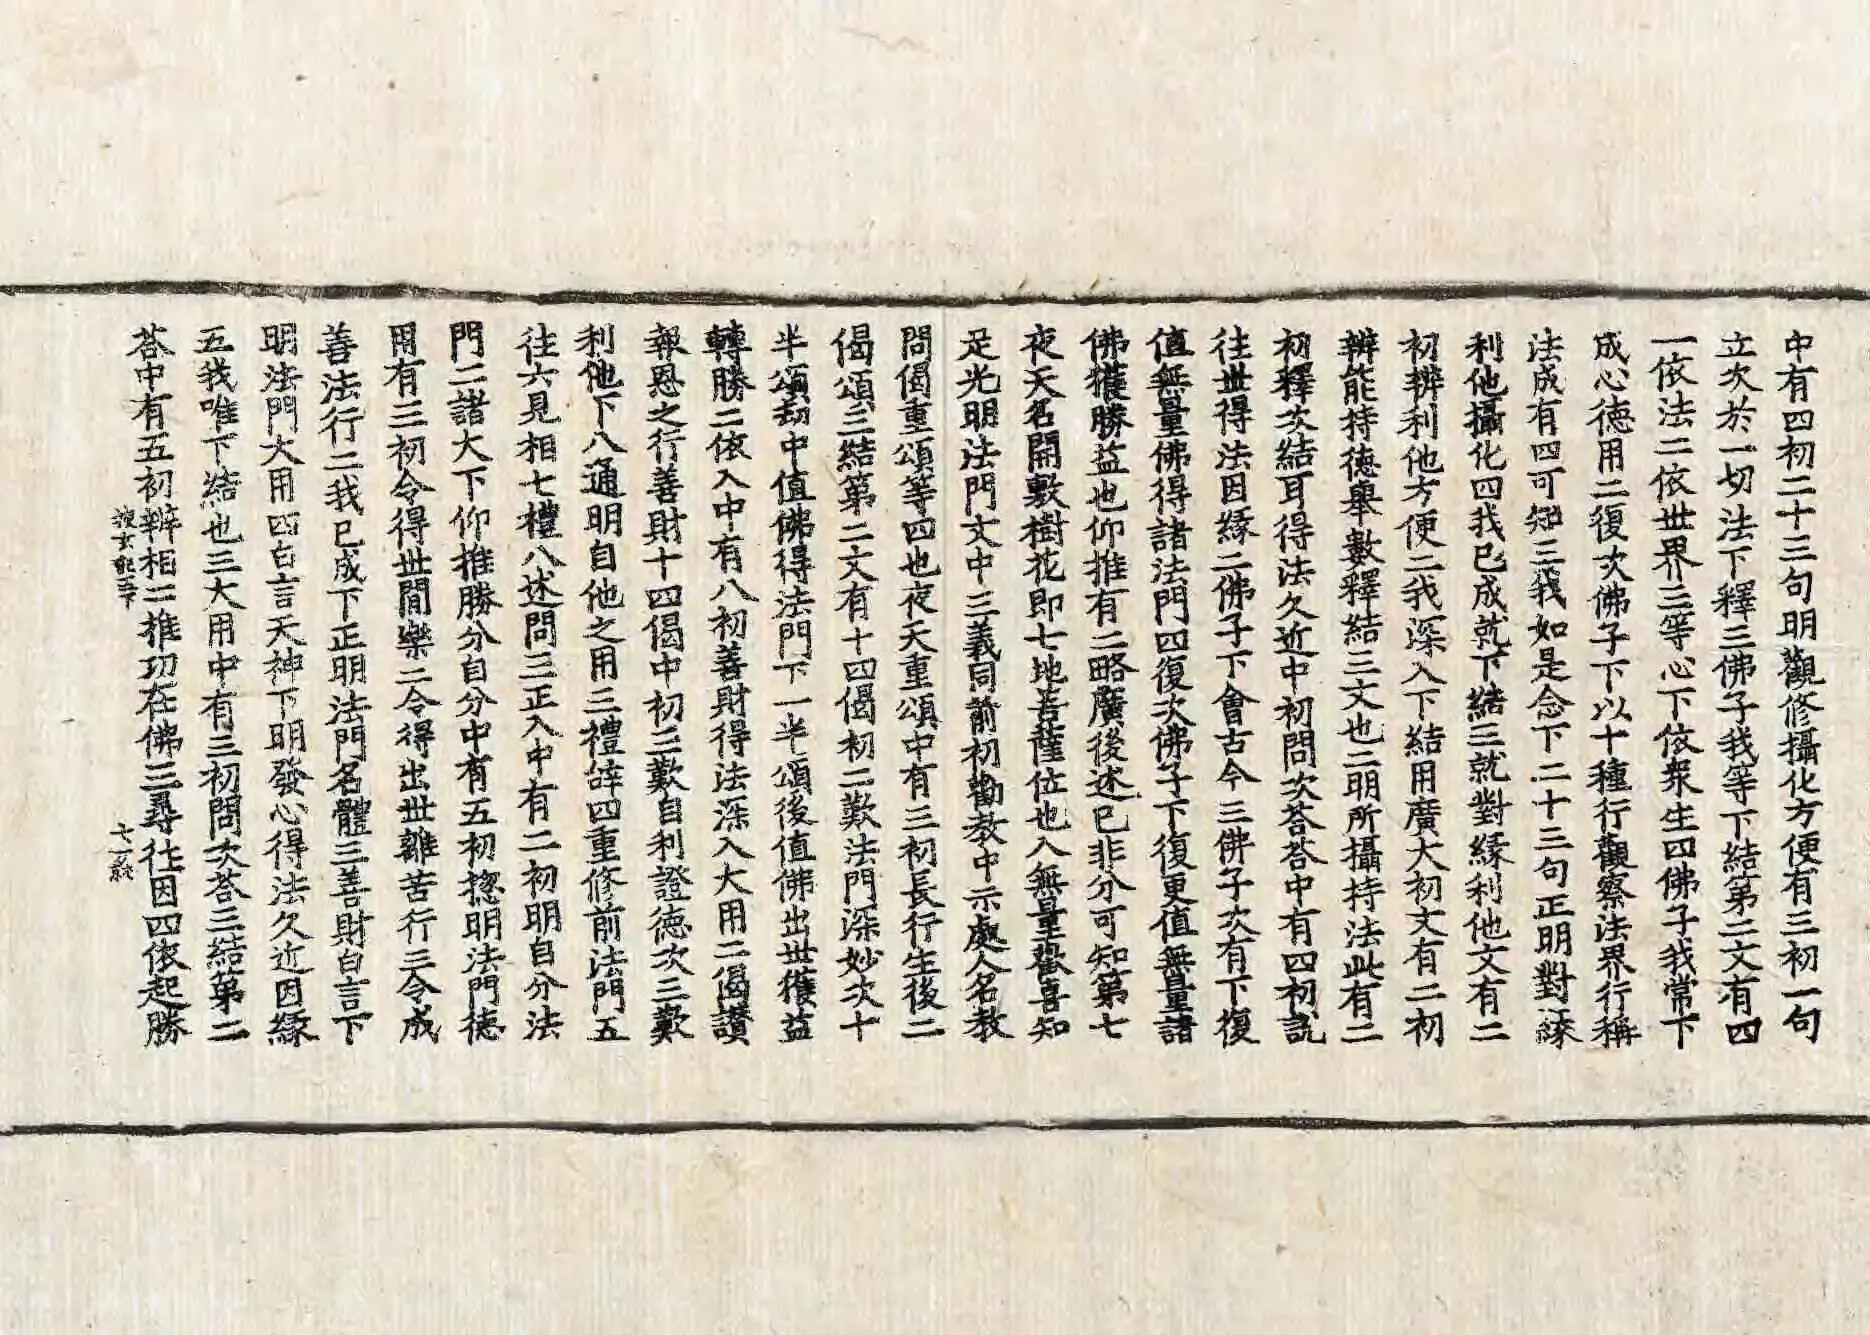 中有四初二十三句明觀修攝化方便有三初一句
立次於一切法下釋三佛子我等下結第二文有四
一依法二依世界三等心下依衆生四佛子我常下
成心德用二復次佛子下以十種行觀察法界行稱
法成有四可知三我如是念下二十三句正明對緣
利他攝化四我已成就下結三就對緣利他文有二
初辨利他方便二我深入下結用廣大初文有二初
辨能持德舉數釋結三文也二明所攝持法此有二
初釋次結耳得法久近中初問次荅荅中有四初說
往世得法因緣二佛子下會古今三佛子次有下復
值無量佛得諸法門四復次佛子下復更值無量諸
佛獲勝益也仰推有二略廣後述已非分可知第七
夜天名開敷樹花即七地菩薩位也入無量歡喜知
足光明法門文中三義同前初勸教中示處人名教
問偈重頌等四也夜天重頌中有三初長行生後二
偈頌三結第二文有十四偈初二歎法門深妙次十
半頌劫中值佛得法門下一半頌後值佛出世獲益
轉勝二依入中有八初善財得法深入大用二偈讃
報恩之行善財十四偈中初三歎自利證德次三歎
利他下八通明自他之用三禮辞四重修前法門五
往六見相七禮八述問三正入中有二初明自分法
門二諸大下仰推勝分自分中有五初揔明法門德
用有三初令得世間樂二令得出世離苦行三令成
善法行二我已成下正明法門名體三善財白言下
明法門大用四白言天神下明發心得法久近因緣
五我唯下結也三大用中有三初問次荅三結第二
荅中有五初辨相二推功在佛三尋往因四依起勝